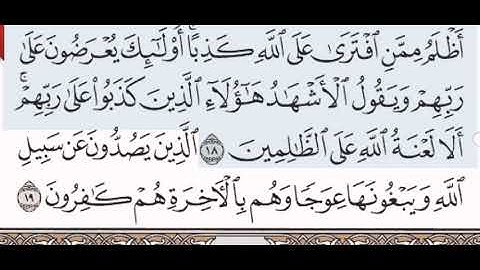 أَظْلَمُ مِمَّنِ ٱفْتَرَىٰ عَلَى ٱللَّهِ كَذِبًا ۚ أُو۟لَـٰٓئِكَ يُعْرَضُونَ عَلَىٰ
رَبِّهِمْ وَيَقُولُ ٱلْأَشْهَـٰدُ هَـٰٓؤُلَآءِ ٱلَّذِينَ كَذَبُوا۟ عَلَىٰ رَبِّهِمْ ۚ
أَلَا لَعْنَةُ ٱللَّهِ عَلَى ٱلظَّـٰلِمِينَ ١٨ ٱلَّذِينَ يَصُدُّونَ عَن سَبِيلِ
ٱللَّهِ وَيَبْغُونَهَا عِوَجًا وَهُم بِٱلْـَٔاخِرَةِ هُمْ كَـٰفِرُونَ ١٩